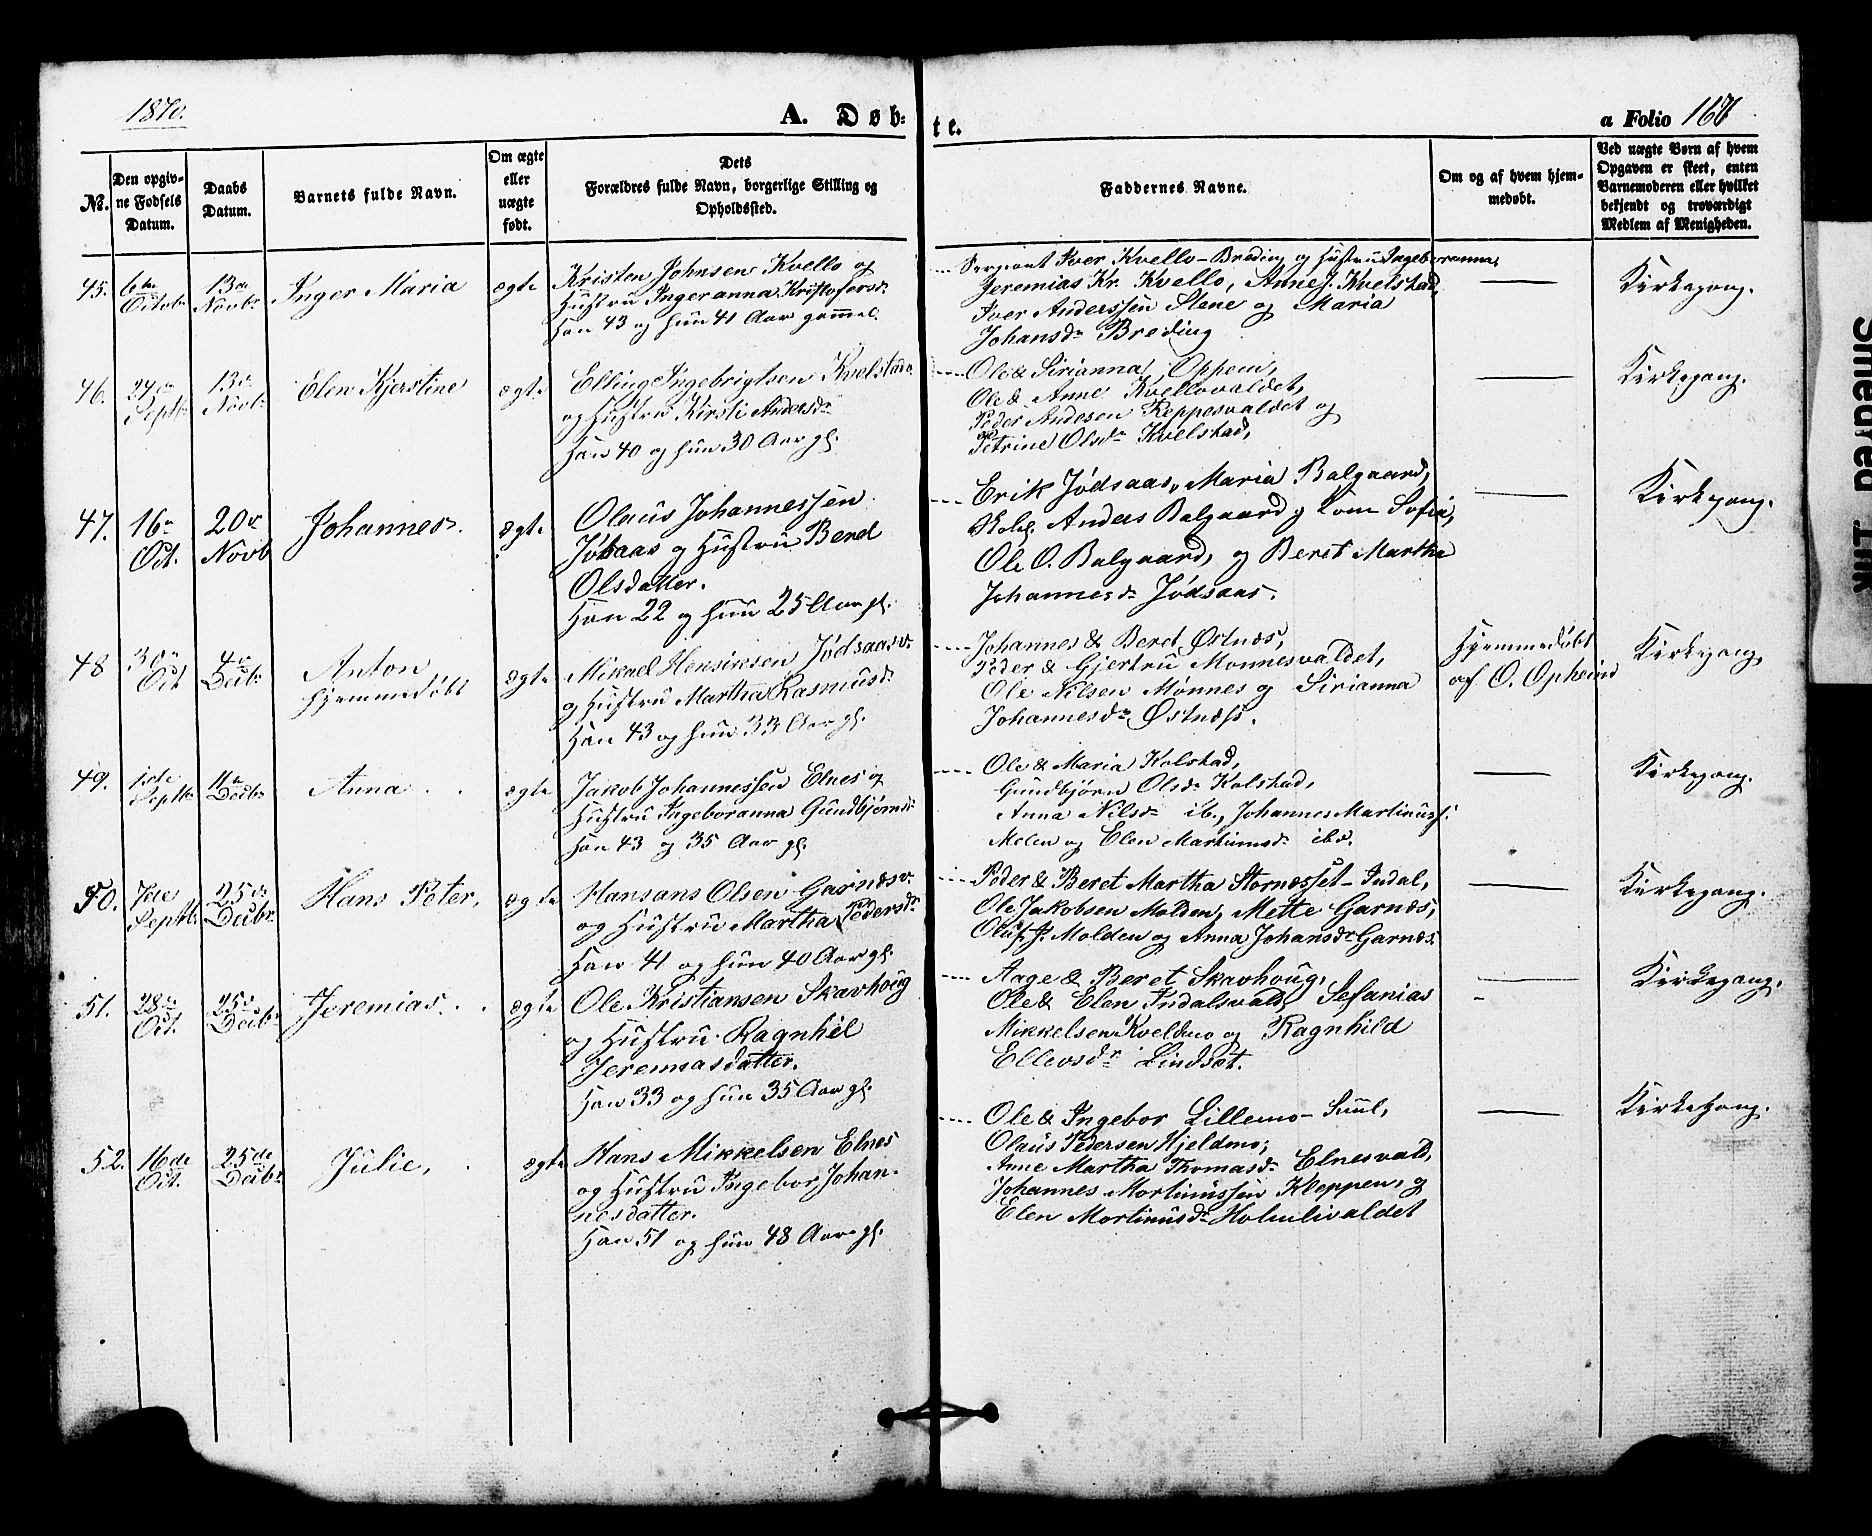 1870.
A. Døb-
te.
a Folio 167
No.
Den opgiv-
ne Fødsels
Datum.
Daabs
Datum.
Barnets fulde Navn.
Om ægte
eller
uægte
født.
Dets
Forældres fulde Navn, borgerlige Stilling og
Opholdssted.
Faddernes Navne.
Om og af hvem hjem-
medøbt.
Ved uægte Børn af hvem
Opgaven er skeet, enten
Barnemoderen eller hvilket
bekjendt og troværdigt
Medlem af Menigheden.
45.
6te
Octob.
13de
Novbr
Inger Maria
ægte
Kristen Johnsen Kvello og
Hustru Ingeranna Kristofersdr
Han 43 og hun 41 Aar gammel.
Sergeant Iver Kvello-Breding og Hustru Ingeboranna,
Jeremias Kr. Kvello, Anne J. Kvelstad,
Iver Anderssen Slene og Maria
Johansdr Breding
Kirkegang.
46.
27de
Septb.
13de
Novbr
Elen Kjerstine
ægte
Elling Ingebrigtsen Kvelstad
og Hustru Kirsti Andersdr
Han 40 og hun 30 Aar gl.
Ole & Sirianna Oppem,
Ole & Anne Kvellovaldet,
Peder Andesen Reppesvaldet og
Petrine Olsdr Kvelstad,
Kirkegang.
47.
16de
Oct.
20de
Novb
Johannes.
ægte
Olaus Johannessen
Jösaas og Hustru Beret
Olsdatter.
Han 22 og hun 25 Aar gl.
Erik Jödsaas, Maria Balgaard,
Anders Balgaard, Sofia,
Ole O. Balgaard, og Beret Martha
Johannesdr Jödsaas.
Kirkegang.
48
30te
Oct
4de
Decbr
Anton
hjemmedöbt
ægte
Mikael Henriksen Jödsaasv.
og Hustru Martha Rasmusdr
Han 43 og hun 33 Aar gl.
Johannes & Beret Østnæs,
Peder & Gjertru Monnesvaldet,
Ole Nilsen Mönnes og Sirianna
Johannesdr Østnæss.
Hjemmedöbt
af O. Opheim
Kirkegang.
49.
1ste
Septb.
11te
Decbr
Anna
ægte
Jakob Johannessen Elnes og
Hustru Ingeboranna Gundbjørnsdr
Han 43 og 35 Aar gl.
Ole & Maria Kolstad,
Gundbjörn Olsdr Kolstad,
Anna Nilsdr ib., Johannes Martinuss.
Melen og Elen Martinusdr ibd.
Kirkegang.
50.
Septb.
25de
Decbr.
Hans Peter,
ægte
Hansans Olsen Garnæsv.
og Hustru Martha Pedersdr
Han 41 og hun 40 Aar gl.
Peder & Beret Martha Stornesset-Indal,
Ole Jakobsen Molden, Mette Garnæs,
Oluf J. Molden og Anna Johansdr Garnæs.
Kirkegang.
51.
28de
Oct.
25de
Decbr
Jeremias.
ægte
Ole Kristiansen Skavhoug
og Hustru Ragnhel
Jeremiasdatter.
Han 33 og hun 35 Aar gl.
Aage & Beret Skavhoug,
Ole & Elen Indalsvald, Sefanias
Mikkelsen Kveldmo og Ragnhild
Ellevsdr Lindsæt.
Kirkegang.
52.
16de
Oct.
25de
Decbr
Julie,
ægte
Hans Mikkelsen Elnes
og Hustru Ingebor Johan-
nesdatter.
Han 51 og hun 48 Aar gl.
Ole & Ingebor Lillemo- Suul,
Olaus Pedersen Hjeldmo,
Anne Martha Thomasdr Elnesvald,
Johannes Mortinussen Kleppen, og
Elen Mortinusdr Holmlivaldet
Kirkegang.